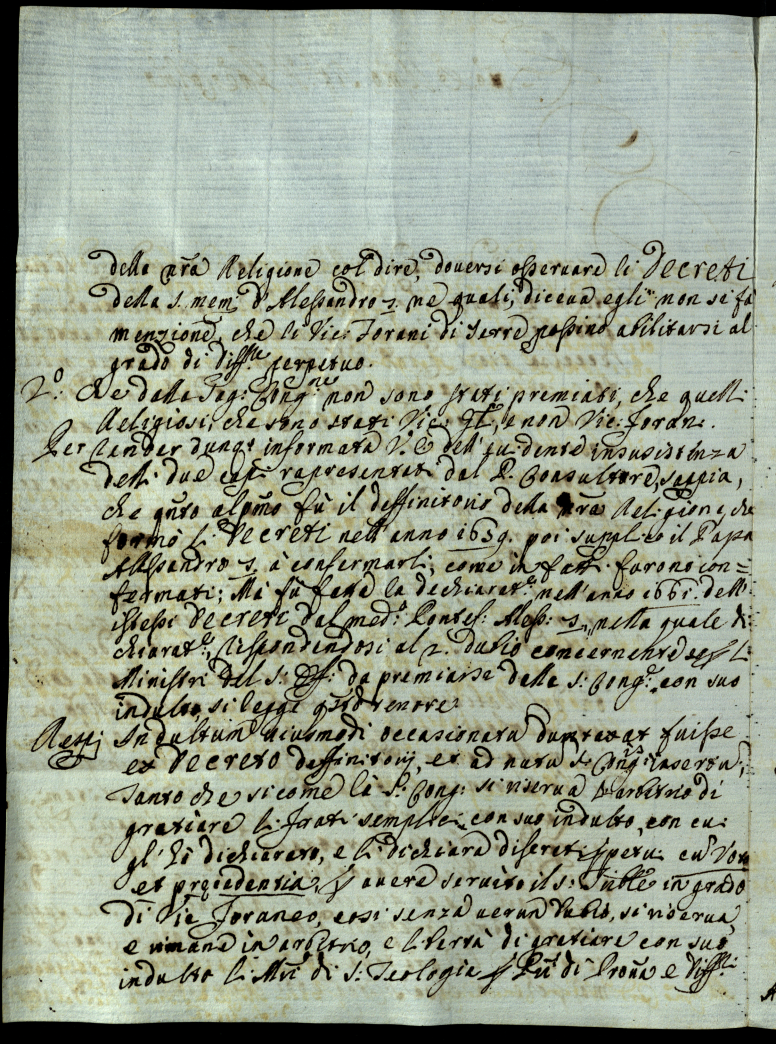 della nra Religione col dire, douersi osseruare li Decreti
della s. mem: d'Alessandro 7. ne quali, diceua egli non si fa
menzione, che li Vic: Forani di Terre possino abilitarsi al
grado di Diffre perpetuo.
2°. che dalla Sag: Congne non sono stati premiati, che quelli
Religiosi, che sono stati Vic: Gli, e non Vic: Foran:
Per render dunqe informata V. E. dell' euidente insussistenza
delli due capi rapresentati dal P. Consultore, sappia,
che qto al pmo fù il deffinitorio della nra Religione, che
formò li Decreti nell' anno 1659. poi supplicò il Papa
Alessandro 7. à confermarli, come in fatti furono con=
fermati; Mà fù fatta la dichiaratne nell' anno 1661. delli
istessi Decreti dal medo Pontef: Aless: 7, nella quale di
chiaratne, rispondendosi al 2. dubio concernente se li
Ministri del S: Off: da premiarse dalla S: Congne con suo
indulto si legge qsto tenore
Indultum huiusmodi occasionatum fuisse
ex Decreto deffinitorij, et ad nutum S. Congnis
Tanto che si come la S. Cong: si riserua l'arbitrio di
gratiare li frati semplici con suo indulto, con cui
gl' hà dichiarato, e li dichiara discreti perpetui cu Voto
et precedentia, p auere seruito il S: Trible in grado
di Vic Foraneo, cosi senza uerun dubio, si riserua
e rimane in arbitrio, e libertà di gratiare con suo
indulto li Mri di S: Teologia p Pri di Proua e Diffri